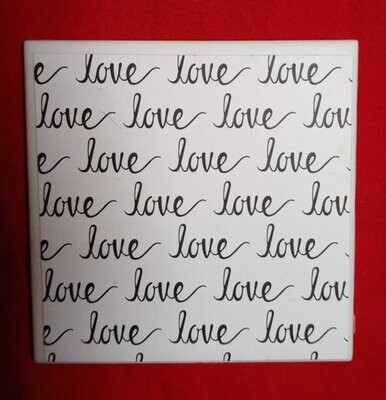 e love love love
love love love lov
e love love love
love love love lov
e love love love
love love love lov
e love love love